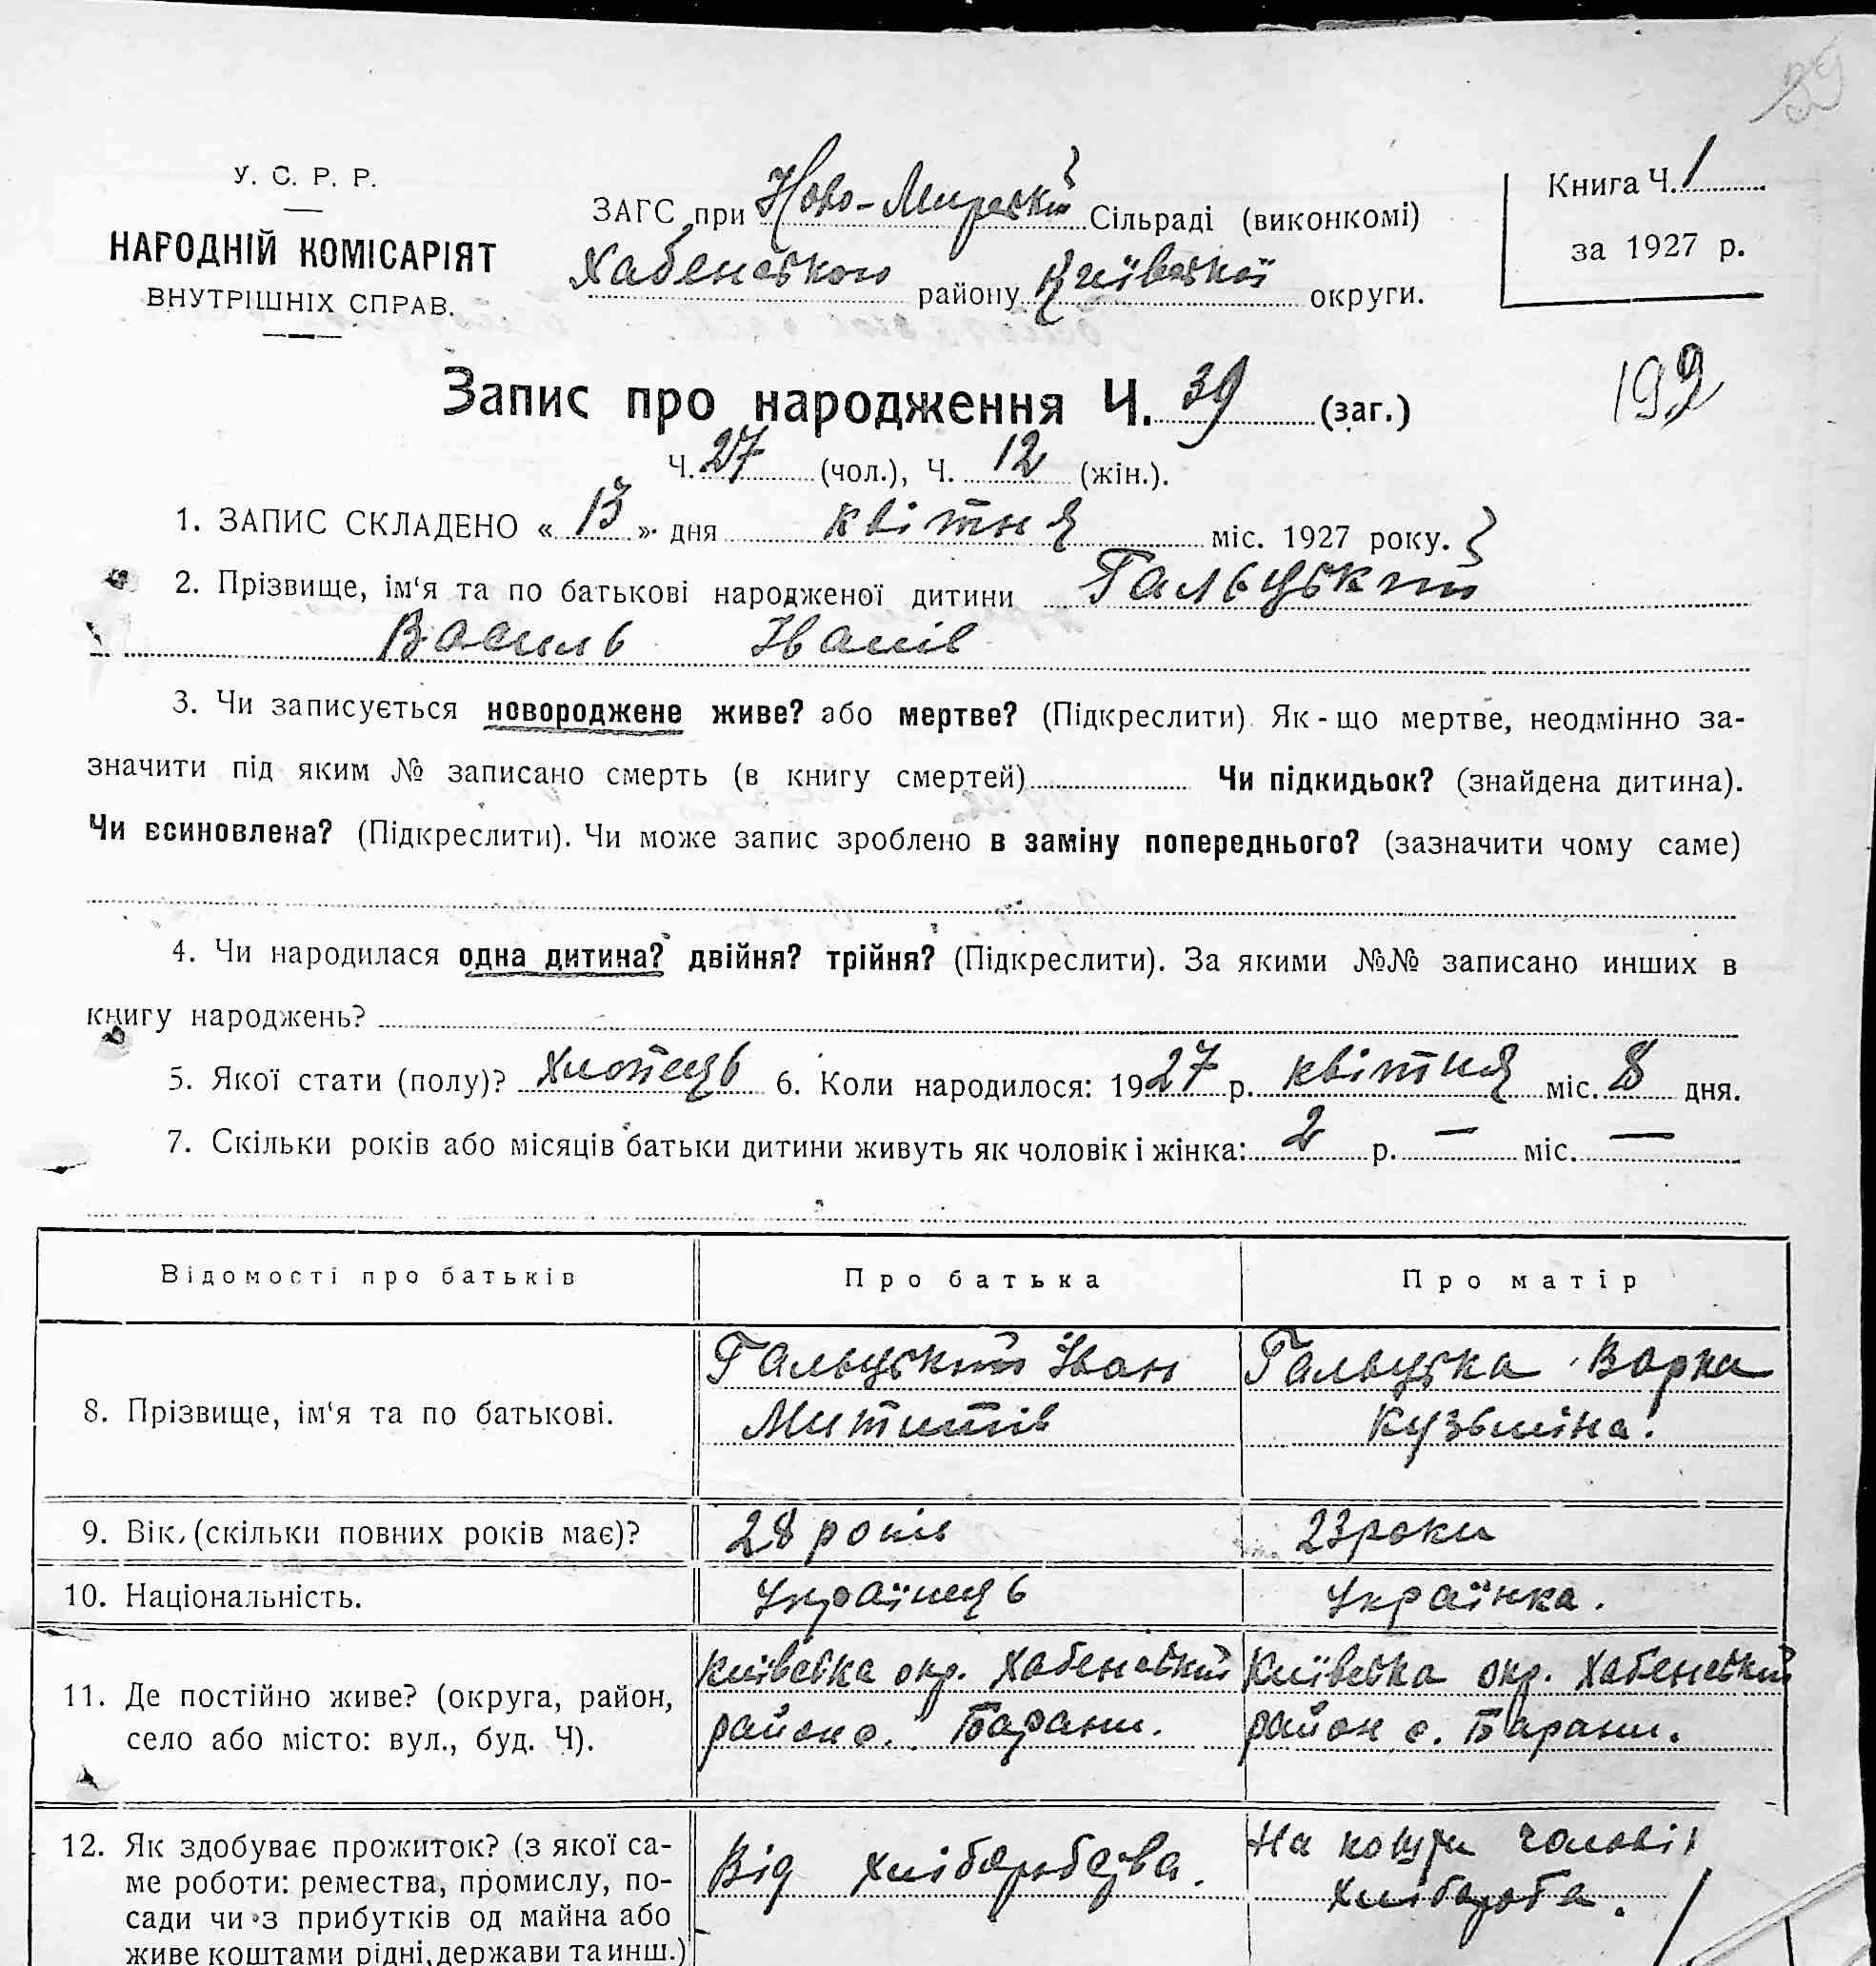 39
У. С. Р. Р.
НАРОДНІЙ КОМІСАРІЯТ
ВНУТРІШНІХ СПРАВ.
ЗАГС при Ново-Мирській Сільраді (виконкомі)
Хабенського району Київської округи.
Книга Ч. 1
за 1927 р.
Запис про народження Ч. 39 (заг.)
192
Ч. 27 (чол.), Ч. 12 (жін.).
1. ЗАПИС СКЛАДЕНО « 13 » дня квітня міс. 1927 року.
2. Прізвище, ім‘я та по батькові народженої дитини Гальцький
Василь Іванів
3. Чи записується новороджене живе? або мертве? (Підкреслити) Як-що мертве, неодмінно за-
значити під яким № записано смерть (в книгу смертей) Чи підкидьок? (знайдена дитина).
Чи всиновлена? (Підкреслити). Чи може запис зроблено в заміну попереднього? (зазначити чому саме)
4. Чи народилася одна дитина? двійня? трійня? (Підкреслити). За якими №№ записано инших в
книгу народжень?
5. Якої стати (полу)? Хлопець 6. Коли народилося: 1927 р. квітня міс. 8 дня.
7. Скільки років або місяців батьки дитини живуть як чоловік і жінка: 2 р. — міс. —
Відомості про батьків Про батька Про матір
8. Прізвище, ім‘я та по батькові.
Гальцький Іван
Гальцька Варка
Кузьміна.
9. Вік, (скільки повних років має)? 28 років 23 роки
10. Національність. Українець Українка.
11. Де постійно живе? (округа, район,
село або місто: вул., буд. Ч).
Київська окр. Хабенський
район с. Барани.
Київська окр. Хабенський
район с. Барани.
12. Як здобуває прожиток? (з якої са-
ме роботи: ремества, промислу, по-
сади чи з прибутків од майна або
живе коштами рідні, держави та инш.)
Від хліборобства.
На кошти чолові
хлібороба.